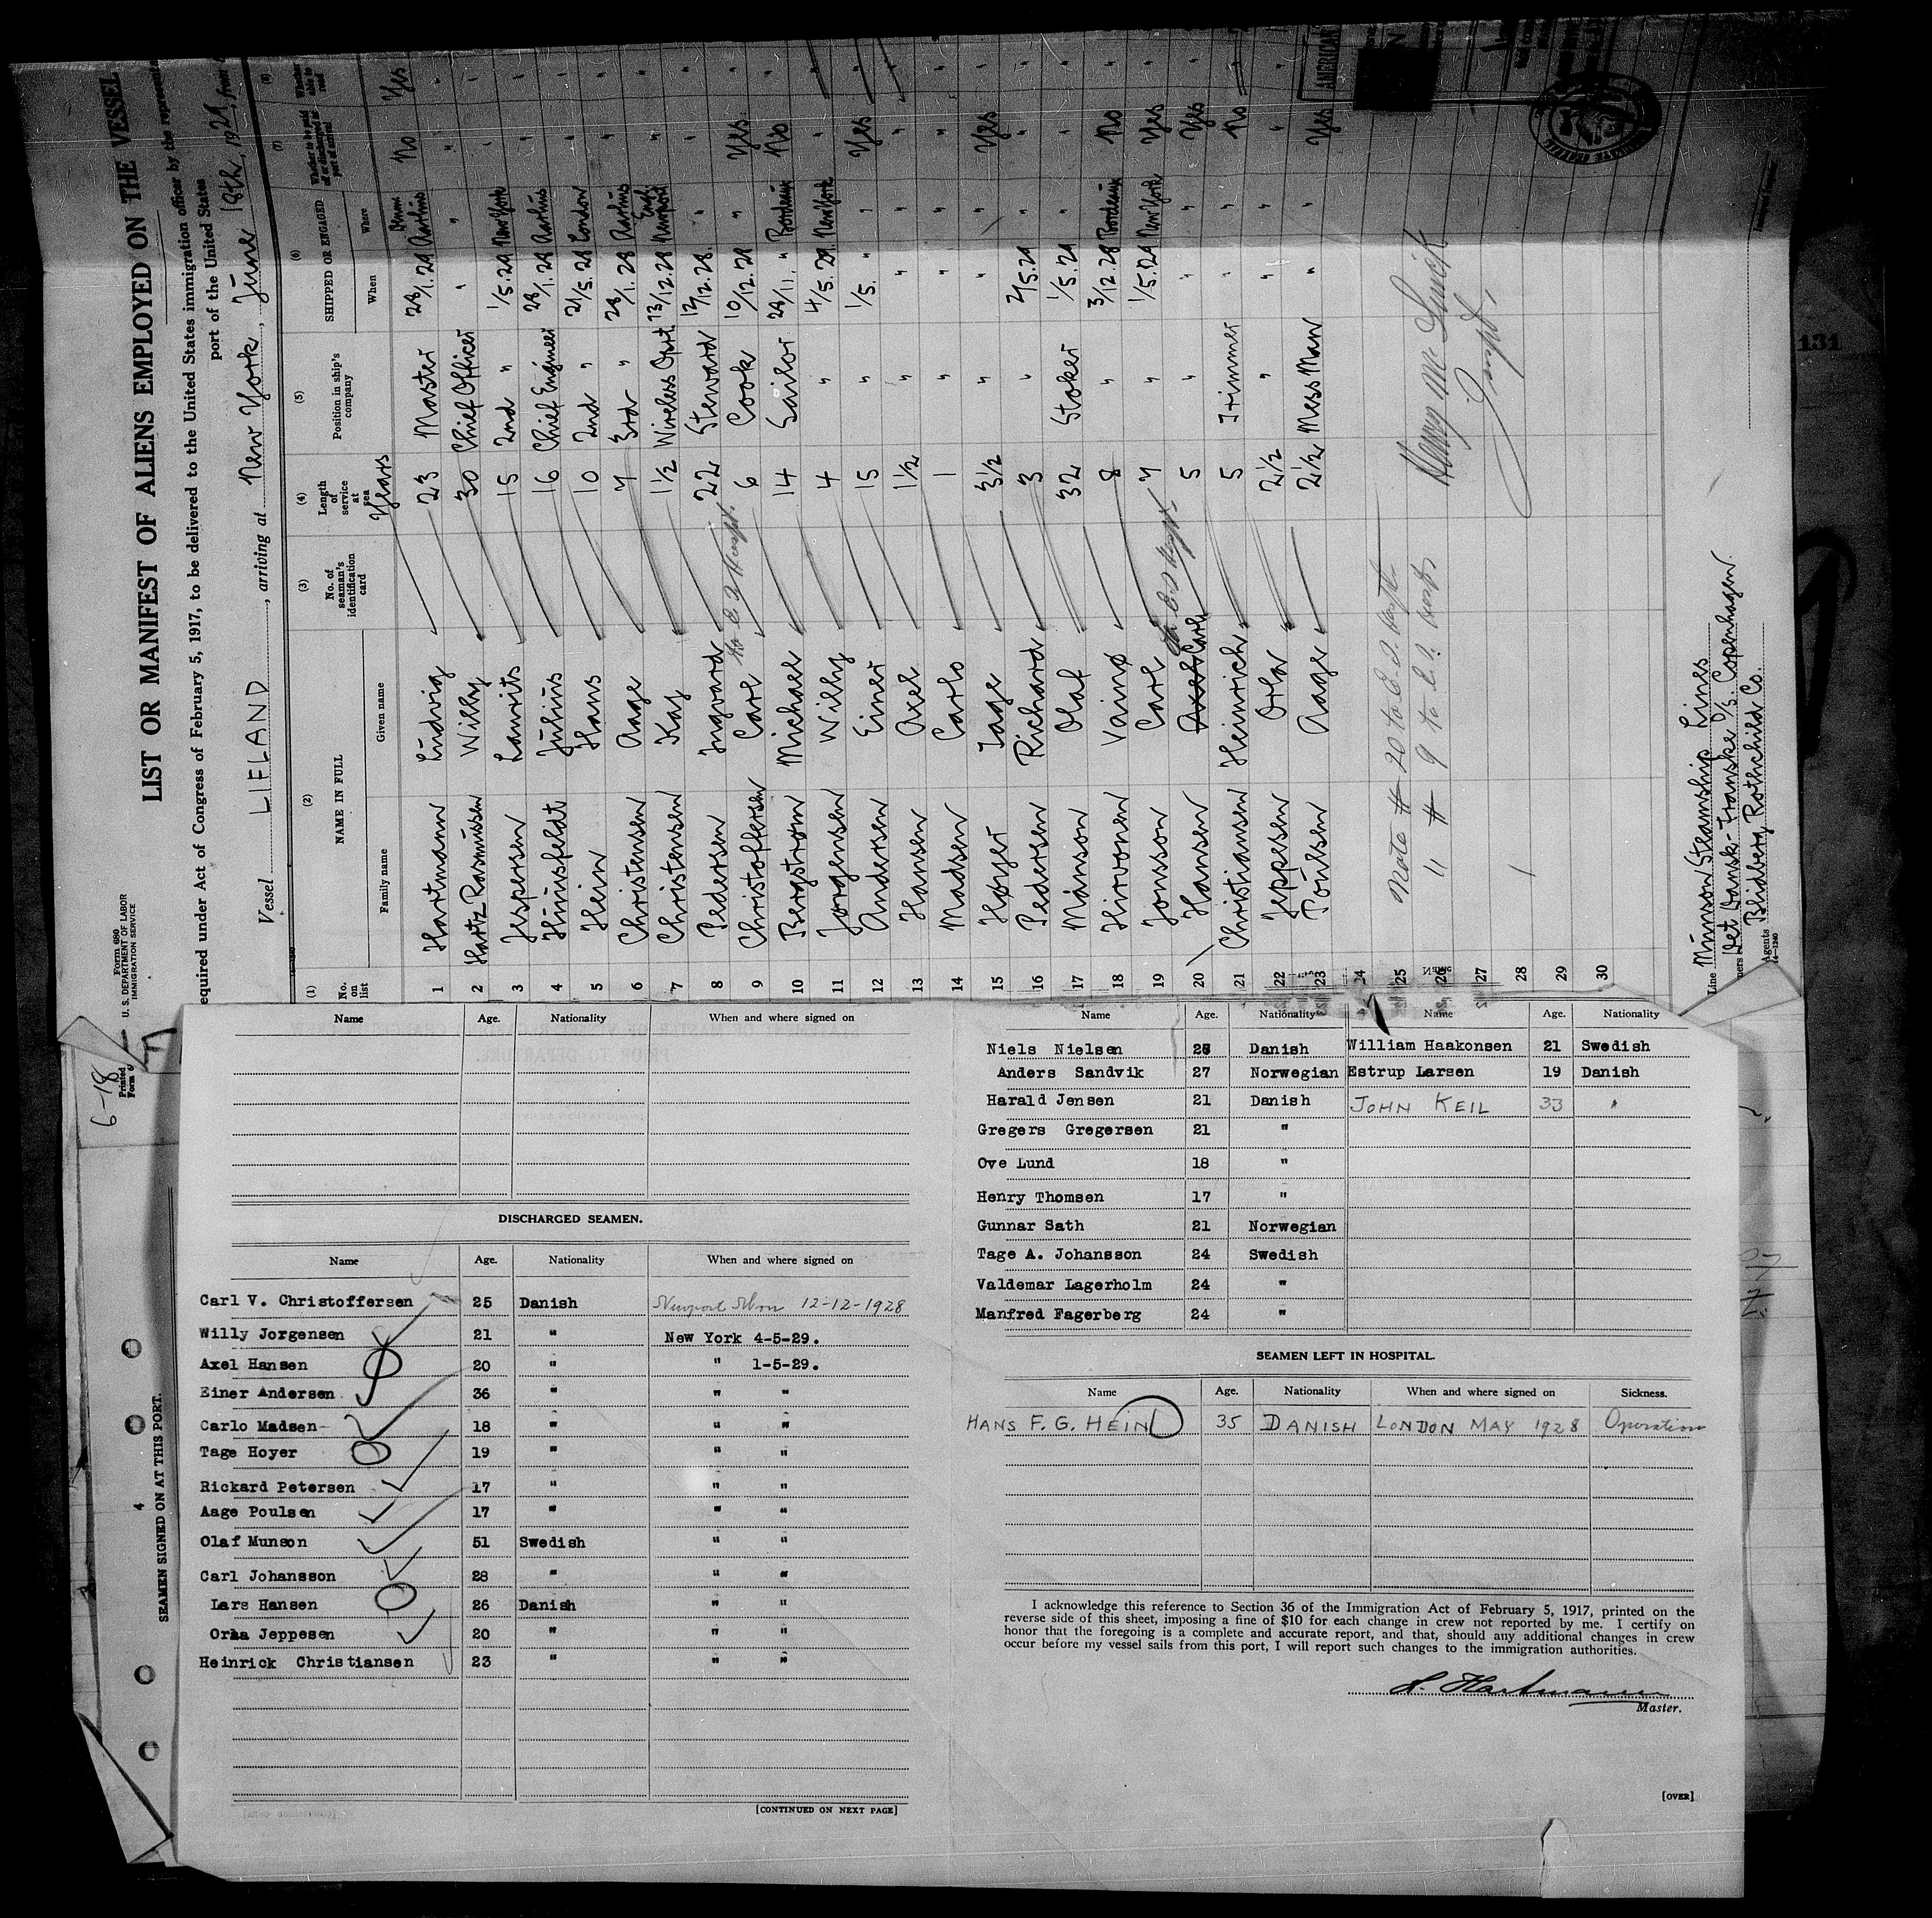 Form 680
U. S. DEPARTMENT OF LABOR
IMMIGRATION SERVICE
LIST OR MANIFEST OF ALIENS EMPLOYED ON THE VESSEL
equired under Act of Congress of February 5, 1917, to be delivered to the United States immigration officer by the
port of the United States
Vessel LIFLAND, arriving at New York, June 18th, 1929, from
(1) (2) (3) (4) (5) (6) (7) (8)
No. on list NAME IN FULL No. of seaman's identification card Length of service at sea Position in ship's company SHIPPED OR ENGAGED
Family name Given name Years When Where
1 Hartmann Ludvig 23 Master 28/1. 29 Aarhus No Yes
2 Hartz Rasmussen Willy 30 Chief Officer " " " "
3 Jespersen Laurits 15 2nd " 1/5. 29 New York " "
4 Hünsfeldt Julius 16 Chief Engineer 28/1. 28 Aarhus " "
5 Hein Hans 10 2nd " 21/5. 28 London " "
6 Christensen Aage 7 3rd " 28/1. 28 Aarhus " "
7 Christensen Kaj 1½ Wireless Oprt. 13/12. 28 Newport Engl. " "
8 Pedersen Ingvard 22 Steward 12/12. 28. " " "
9 Christoffersen Carl 6 Cook 10/12. 28 " Yes "
10 Bergstrøm Michael 14 Sailor 29/11. " Bordeaux No "
11 Jørgensen Willy 4 " 4/5. 29. New York " "
12 Andersen Einer 15 " 1/5. " " Yes "
13 Hansen Axel 1½ " " " " "
14 Madsen Carlo 1 " " " " "
15 Høyer Tage 3½ " " " Yes "
16 Pedersen Richard 3 " 2/5. 29 " " "
17 Månson Olaf 32 Stoker 1/5. 29 " " "
18 Hirvonen Vainø 8 " 3/12. 28 Bordeaux No "
19 Jonsson Carl 7 " 1/5. 29 New York Yes "
20 Hansen Axel Carl 5 " " " Yes "
21 Christiansen Heinrich 5 Trimmer " " No "
22 Jeppesen Orla 2½ " " " " "
23 Poulsen Aage 2½ Mess Man " " Yes "
24 Note # 20 to E. I.
25 " # 9 to E. I.
26
27
28
29
30
Line Munson Steamship Lines
Det Dansk-Franske A/S. Copenhagen.
Agents Blidberg Rothchild Co.
AMERICAN
131
6-18
SEAMEN SIGNED ON AT THIS PORT.
4
Name Age. Nationality When and where signed on
DISCHARGED SEAMEN.
Name Age. Nationality When and where signed on
Carl V. Christoffersen 25 Danish Newport Mon 12-12-1928
Willy Jorgensen 21 " New York 4-5-29.
Axel Hansen 20 " " 1-5-29.
Einer Andersen 36 " " "
Carlo Madsen 18 " " "
Tage Hoyer 19 " " "
Rickard Petersen 17 " " "
Aage Poulsen 17 " " "
Olaf Munson 51 Swedish " "
Carl Johansson 28 " " "
Lars Hansen 26 Danish " "
Orla Jeppesen 20 " " "
Heinrick Christiansen 23 " " "
[CONTINUED ON NEXT PAGE]
Name Age. Nationality Name Age. Nationality
Niels Nielsen 25 Danish William Haakonsen 21 Swedish
Anders Sandvik 27 Norwegian Estrup Larsen 19 Danish
Harald Jensen 21 Danish JOHN KEIL 33 "
Gregers Gregersen 21 "
Ove Lund 18 "
Henry Thomsen 17 "
Gunnar Sath 21 Norwegian
Tage A. Johansson 24 Swedish
Valdemar Lagerholm 24 "
Manfred Fagerberg 24 "
SEAMEN LEFT IN HOSPITAL.
Name Age. Nationality When and where signed on Sickness.
HANS F. G. HEIN 35 DANISH LONDON MAY 1928 Operation
I acknowledge this reference to Section 36 of the Immigration Act of February 5, 1917, printed on the
reverse side of this sheet, imposing a fine of $10 for each change in crew not reported by me. I certify on
honor that the foregoing is a complete and accurate report, and that, should any additional changes in crew
occur before my vessel sails from this port, I will report such changes to the immigration authorities.
L. Hartmann
Master.
[OVER]